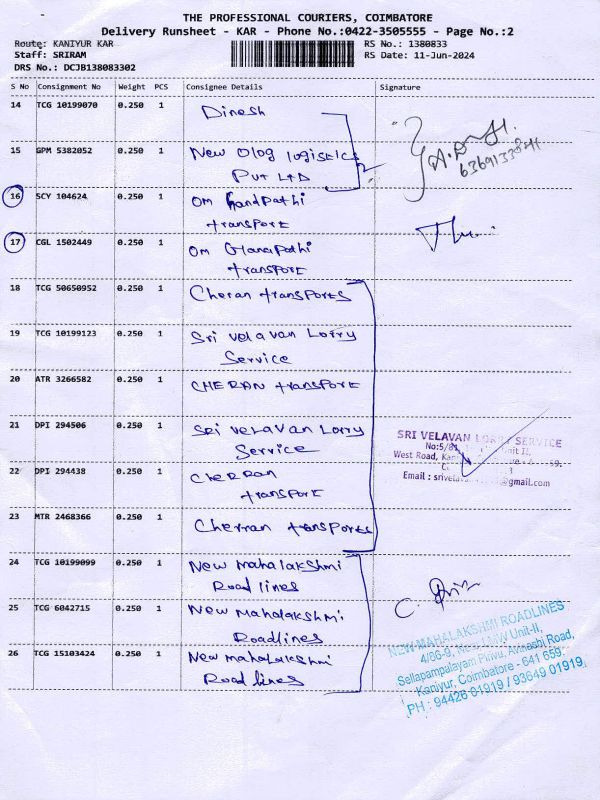 THE PROFESSIONAL COURIERS, COIMBATORE
Delivery Runsheet - KAR - Phone No.:0422-3505555 - Page No.:2
Route: KANIYUR KAR
RS No.: 1380833
Staff: SRIRAM
RS Date: 11-Jun-2024
DRS No.: DCJB138083302
S No Consignment No Weight PCS Consignee Details Signature
14 TCG 10199070 0.250 1 Dinesh
15 GPM 5382052 0.250 1 New Olog Logistics
Pvt Ltd
16 SCY 104624 0.250 1 Om Ganapathi
transport
17 CGL 1502449 0.250 1 Om Ganapathi
transport
18 TCG 50650952 0.250 1 Cheran transports
19 TCG 10199123 0.250 1 Sri velavan Lorry
Service
20 ATR 3266582 0.250 1 CHERAN transport
21 DPI 294506 0.250 1 Sri velavan Lorry
Service
SRI VELAVAN LORRY SERVICE
No:5/81, Unit II,
West Road,
Email : @gmail.com
22 DPI 294438 0.250 1 Cherran
transport
23 MTR 2468366 0.250 1 Cherran transports
24 TCG 10199099 0.250 1 New Mahalakshmi
Road lines
25 TCG 6042715 0.250 1 New Mahalakshmi
Roadlines
26 TCG 15103424 0.250 1 New mahalakshmi
Road lines
NEW MAHALAKSHMI ROADLINES
Unit-II,
Sellapampalayam Pirivu, Avinashi Road,
Kaniyur, Coimbatore - 641 659.
PH : 94426 01919 / 93649 01919